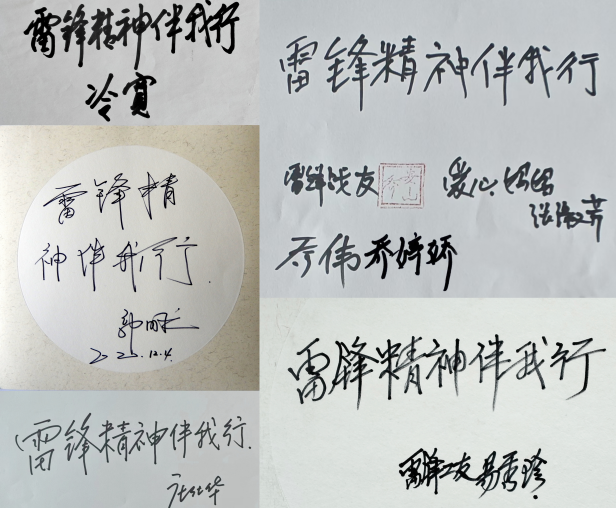 雷锋精神伴我行
冷宽
雷锋精
神伴我行.
郭明义
2025.12.4.
雷锋精神伴我行.
雷锋精神伴我行
雷锋战友
爱心妈妈
张淑芳
乔伟 乔婷娇
雷锋精神伴我行
雷锋工友 易秀珍